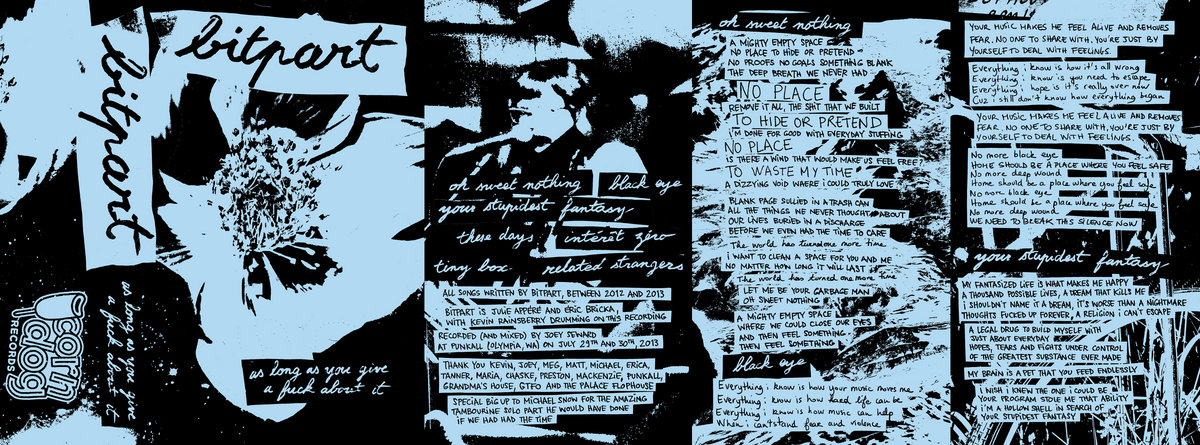 bitpart
bitpart
corn
dog
RECORDS
as long as you give
a fuck about it
as long as you give
a fuck about it
oh sweet nothing black eye
your stupidest fantasy
these days intérêt zéro
tiny box related strangers
ALL SONGS WRITTEN BY BITPART, BETWEEN 2012 AND 2013
BITPART IS JULIE APPÉRÉ AND ERIC BRICKA,
WITH KEVIN RAINSBERRY DRUMMING ON THIS RECORDING
RECORDED (AND MIXED) BY JOEY SEWARD
AT PUNKALL (OLYMPIA, WA) ON JULY 29TH AND 30TH, 2013
THANK YOU KEVIN, JOEY, MEG, MATT, MICHAEL, ERICA,
TANNER, MARIA, CHASKE, PRESTON, MACKENZIE, PUNKALL,
GRANDMA'S HOUSE, GTFO AND THE PALACE FLOPHOUSE
SPECIAL BIG UP TO MICHAEL SNOW FOR THE AMAZING
TAMBOURINE SOLO PART HE WOULD HAVE DONE
IF WE HAD HAD THE TIME
oh sweet nothing
A MIGHTY EMPTY SPACE
NO PLACE TO HIDE OR PRETEND
NO PROOFS NO GOALS SOMETHING BLANK
THE DEEP BREATH WE NEVER HAD
NO PLACE
REMOVE IT ALL, THE SHIT THAT WE BUILT
TO HIDE OR PRETEND
I'M DONE FOR GOOD WITH EVERYDAY STUFFING
NO PLACE
IS THERE A WIND THAT WOULD MAKE US FEEL FREE?
TO WASTE MY TIME
A DIZZYING VOID WHERE I COULD TRULY LOVE
BLANK PAGE SULLIED IN A TRASH CAN
ALL THE THINGS WE NEVER THOUGHT ABOUT
OUR LIVES BURIED IN A DISCHARGE
BEFORE WE EVEN HAD THE TIME TO CARE
The world has turned one more time
I WANT TO CLEAN A SPACE FOR YOU AND ME
NO MATTER HOW LONG IT WILL LAST
The world has turned one more time
LET ME BE YOUR GARBAGE MAN
OH SWEET NOTHING
A MIGHTY EMPTY SPACE
WHERE WE COULD CLOSE OUR EYES
AND THEN FEEL SOMETHING
THEN FEEL SOMETHING
black eye
Everything i know is how your music moves me
Everything i know is how hard life can be
Everything i know is how music can help
When i can't stand fear and violence
YOUR MUSIC MAKES ME FEEL ALIVE AND REMOVES
FEAR. NO ONE TO SHARE WITH. YOU'RE JUST BY
YOURSELF TO DEAL WITH FEELINGS.
Everything i know is how it's all wrong
Everything i know is you need to escape
Everything i hope is it's really over now
Cuz i still don't know how everything began
YOUR MUSIC MAKES ME FEEL ALIVE AND REMOVES
FEAR. NO ONE TO SHARE WITH, YOU'RE JUST BY
YOURSELF TO DEAL WITH FEELINGS.
No more black eye
HOME SHOULD BE A PLACE WHERE YOU FEEL SAFE
No more deep wound
Home should be a place where you feel safe
No more black eye
Home should be a place where you feel safe
No more deep wound
WE NEED TO BREAK THIS SILENCE NOW
your stupidest fantasy
MY FANTASIZED LIFE IS WHAT MAKES ME HAPPY
A THOUSAND POSSIBLE LIVES, A DREAM THAT KILLS ME
I SHOULDN'T NAME IT A DREAM, IT'S WORSE THAN A NIGHTMARE
THOUGHTS FUCKED UP FOREVER, A RELIGION I CAN'T ESCAPE
A LEGAL DRUG TO BUILD MYSELF WITH
JUST ABOUT EVERYDAY
HOPES, TEARS AND FIGHTS UNDER CONTROL
OF THE GREATEST SUBSTANCE EVER MADE
MY BRAIN IS A PET THAT YOU FEED ENDLESSLY
I WISH I KNEW THE ONE I COULD BE
YOUR PROGRAM STOLE ME THAT ABILITY
I'M A HOLLOW SHELL IN SEARCH OF
YOUR STUPIDEST FANTASY